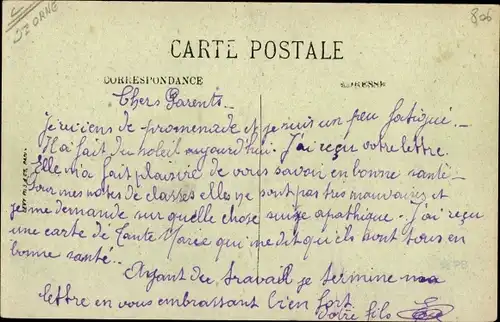 DZ ORNE
806
CARTE POSTALE
CORRESPONDANCE
ADRESSE
Chers Parents –
Je reviens de promenade et je suis un peu fatigué. –
Il a fait du soleil aujourd'hui. J'ai reçu votre lettre.
Elle m'a fait plaisir de vous savoir en bonne santé –
Pour mes notes de classes elles ne sont pas très mauvaises et
je me demande sur quelle chose suis-je apathique. J'ai reçu
une carte de Tante Marie qui me dit qu'ils sont tous en
bonne santé.
Ayant du travail je termine ma
lettre en vous embrassant bien fort
Votre fils